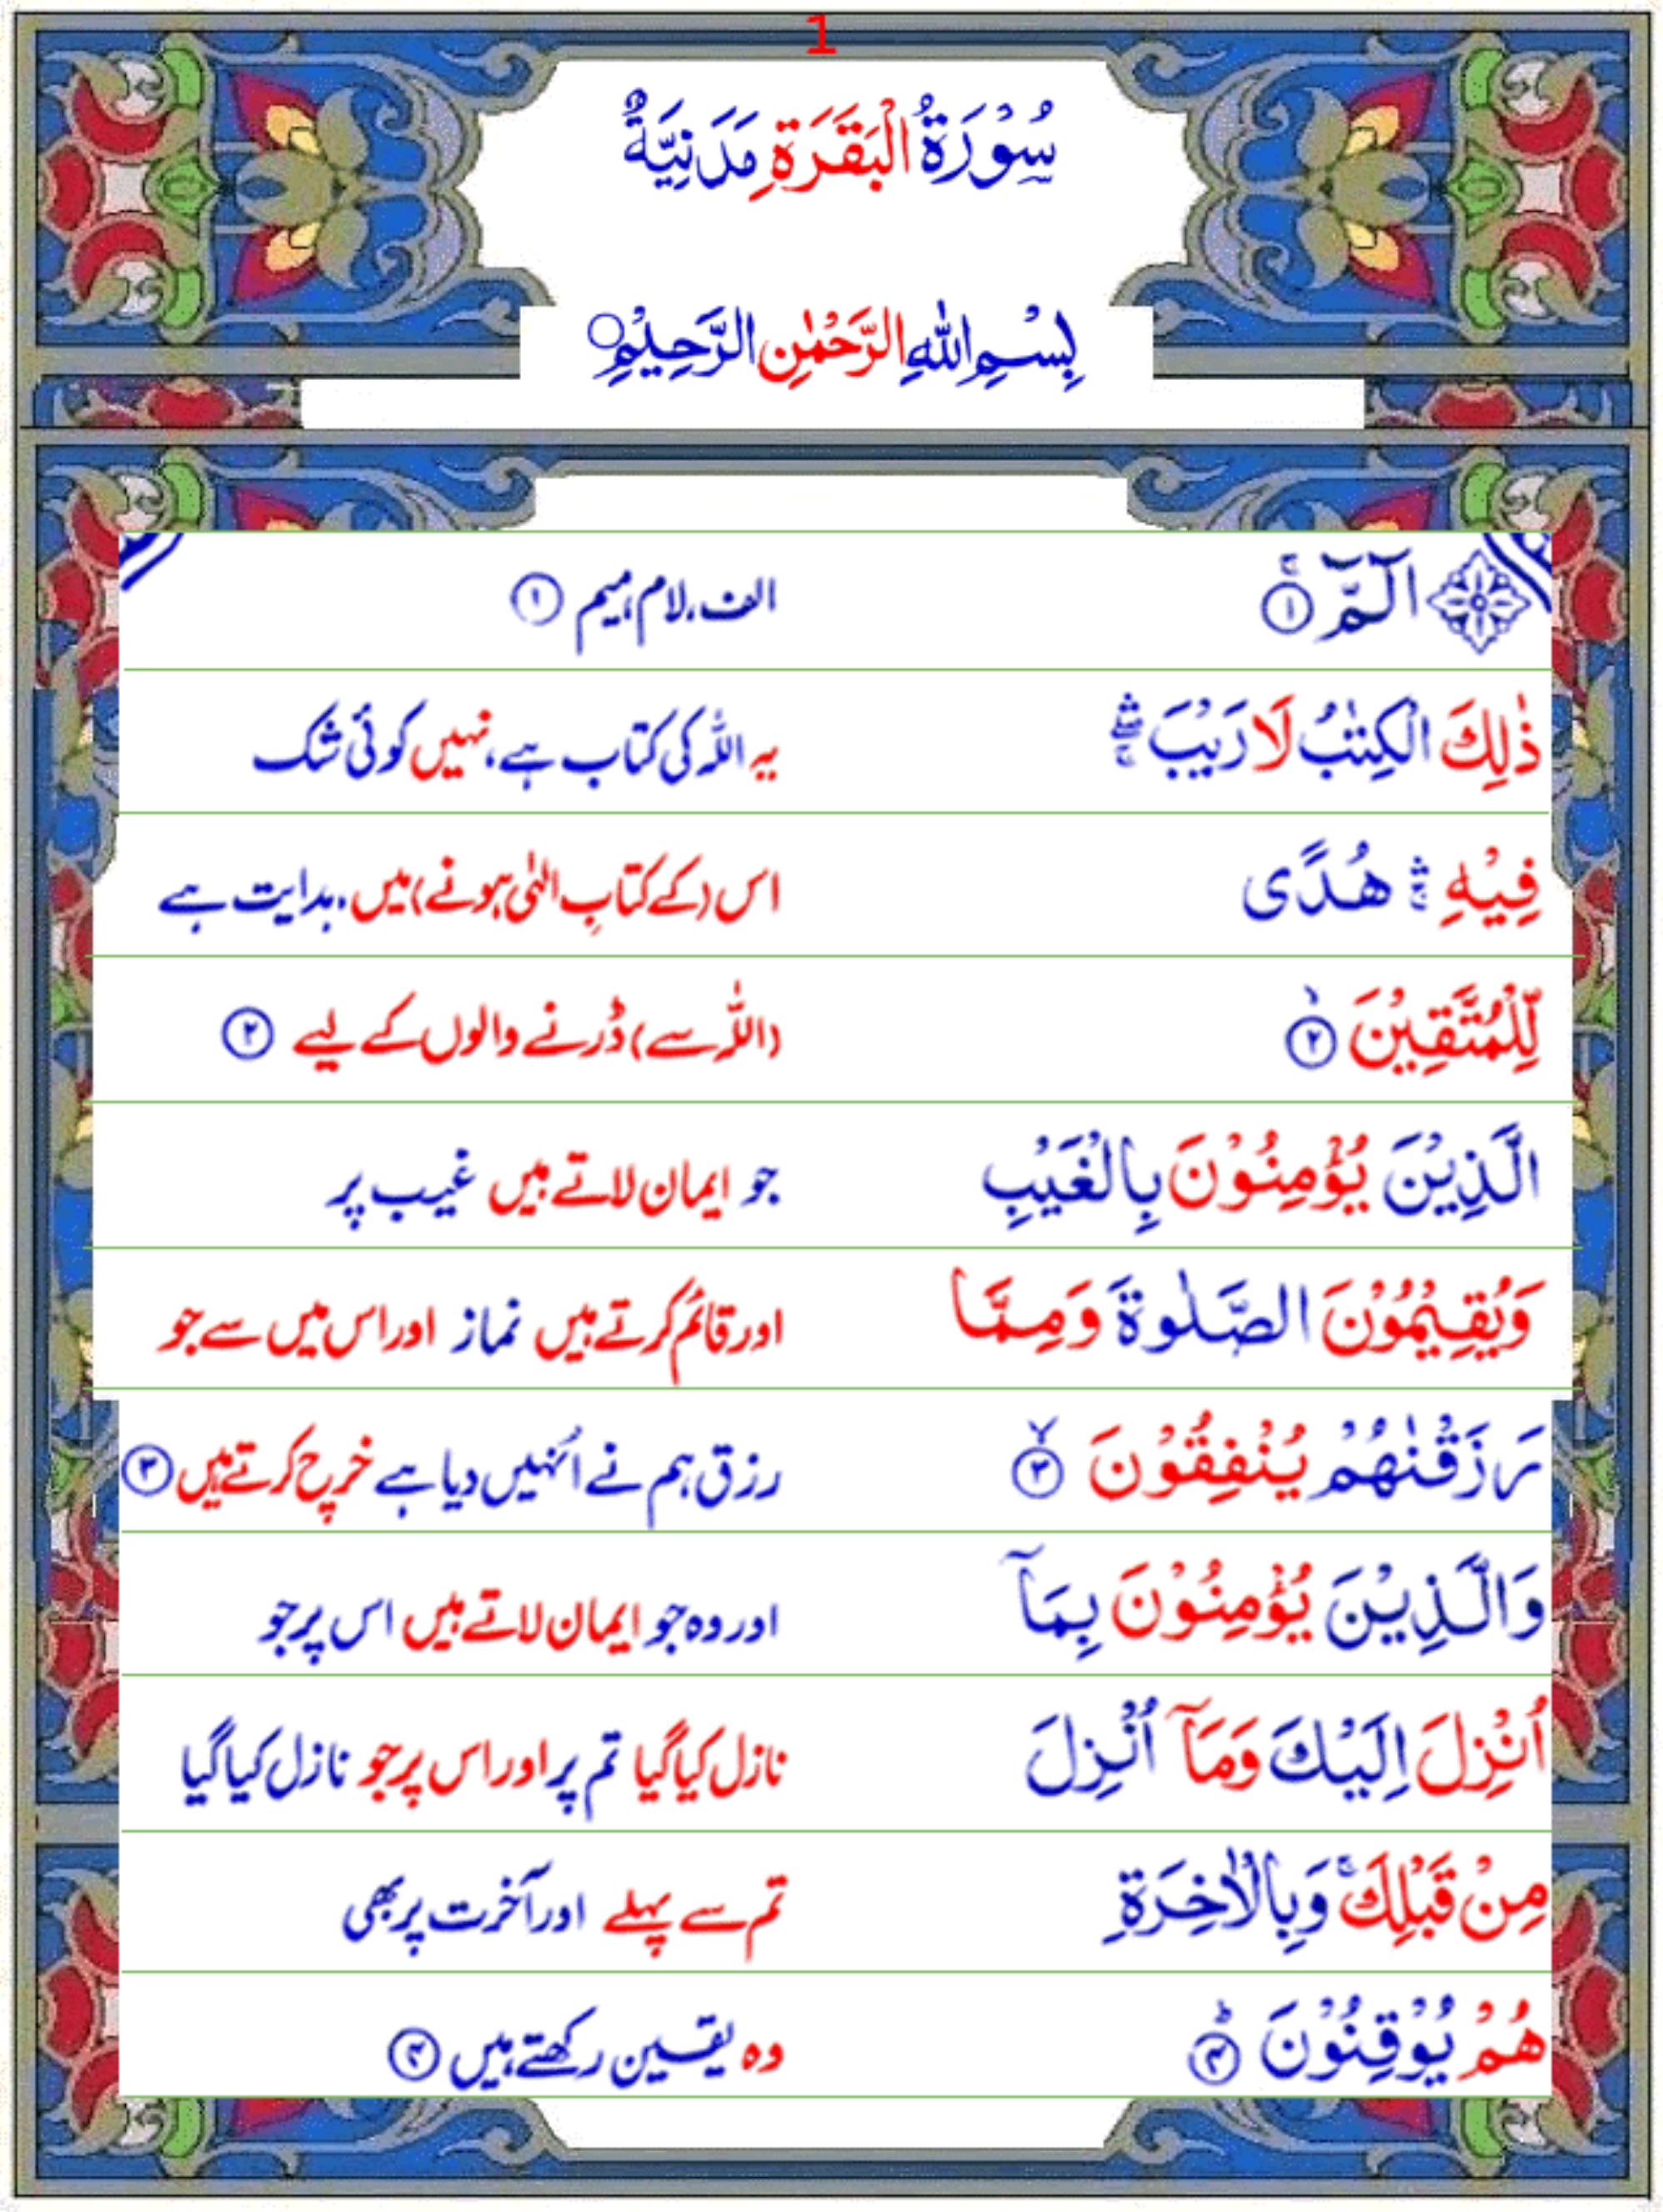 1
سُوْرَةُ الْبَقَرَةِ مَدَنِيَّةٌ
بِسْمِ اللّٰهِ الرَّحْمٰنِ الرَّحِيْمِ
الٓمّٓ ۚ﴿۱﴾ الف، لام، میم ﴿۱﴾
ذٰلِكَ الْكِتٰبُ لَا رَيْبَ ۛۚ یہ اللہ کی کتاب ہے، نہیں کوئی شک
فِيْهِ ۛۚ هُدًى اس (کے کتابِ الٰہی ہونے) میں، ہدایت ہے
لِّلْمُتَّقِيْنَ ۙ﴿۲﴾ (اللہ سے) ڈرنے والوں کے لیے ﴿۲﴾
الَّذِيْنَ يُؤْمِنُوْنَ بِالْغَيْبِ جو ایمان لاتے ہیں غیب پر
وَيُقِيْمُوْنَ الصَّلٰوةَ وَمِمَّا اور قائم کرتے ہیں نماز اور اس میں سے جو
رَزَقْنٰهُمْ يُنْفِقُوْنَ ۙ﴿۳﴾ رزق ہم نے اُنہیں دیا ہے خرچ کرتے ہیں ﴿۳﴾
وَالَّذِيْنَ يُؤْمِنُوْنَ بِمَآ اور وہ جو ایمان لاتے ہیں اس پر جو
اُنْزِلَ اِلَيْكَ وَمَآ اُنْزِلَ نازل کیا گیا تم پر اور اس پر جو نازل کیا گیا
مِنْ قَبْلِكَ ۚ وَبِالْاٰخِرَةِ تم سے پہلے اور آخرت پر بھی
هُمْ يُوْقِنُوْنَ ؕ﴿۴﴾ وہ یقین رکھتے ہیں ﴿۴﴾